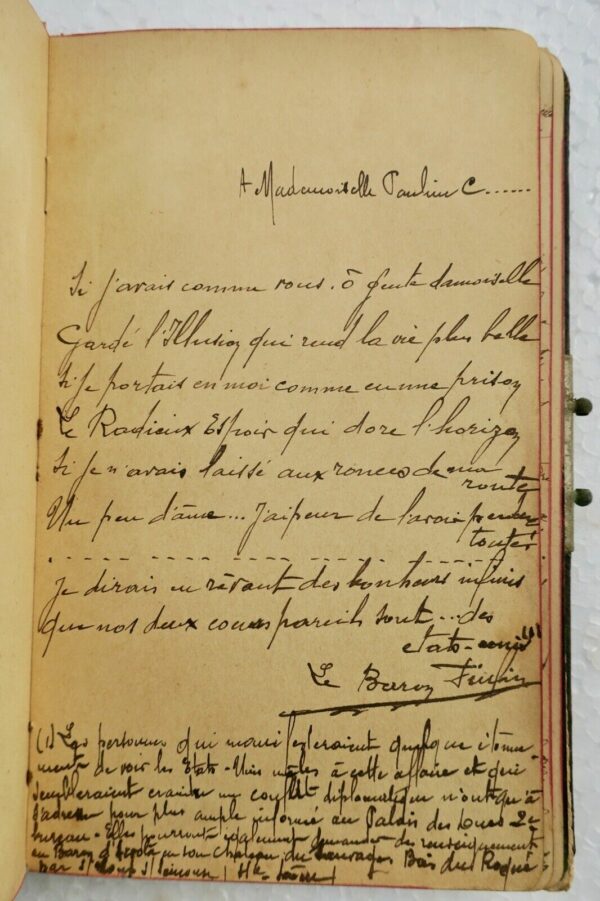 A Mademoiselle Pauline C......
Si j'avais comme vous, ô gente damoiselle
Gardé l'Illusion qui rend la vie plus belle
Si je portais en moi comme en une prison
Le Radieux Espoir qui dore l'horizon
Si je n'avais laissé aux ronces de ma
route
Un peu d'âme... J'ai peur de l'avoir perdue
toute!
Je dirais en rêvant des bonheurs infinis
Que nos deux coeurs pareils sont ... des
états-unis (1)
Le Baron
(1) Les personnes qui manifesteraient quelque étonne
ment de voir les Etats-Unis mêlés à cette affaire et qui
sembleraient craindre un conflit diplomatique n'ont qu'à
s'adresser pour plus ample informé au Palais des 2e
bureau - Elles pourront également demander des renseignements
au Baron en son Chateau du Bois du Roqué
par St